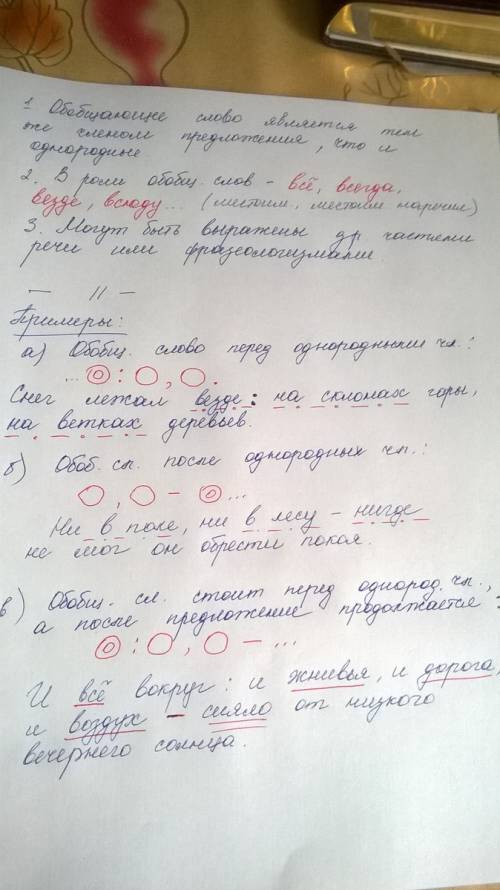 1. Обобщающее слово является тем
же членом предложения, что и
однородные
2. В роли обобщ. слов - всё, всегда,
везде, всюду... (местоим., местоим. наречия)
3. Могут быть выражены др. частями
речи или фразеологизмами.
— // —
Примеры:
а) Обобщ. слово перед однородными чл.:
... ⊙ : О, О.
Снег лежал везде: на склонах горы,
на ветках деревьев.
б) Обоб. сл. после однородных чл.:
О, О - ⊙ ...
Ни в поле, ни в лесу - нигде
не мог он обрести покоя.
в) Обобщ. сл. стоит перед однород. чл.,
а после предложение продолжается:
⊙ : О, О - ...
И всё вокруг: и жнивья, и дорога,
и воздух - сияло от низкого
вечернего солнца.